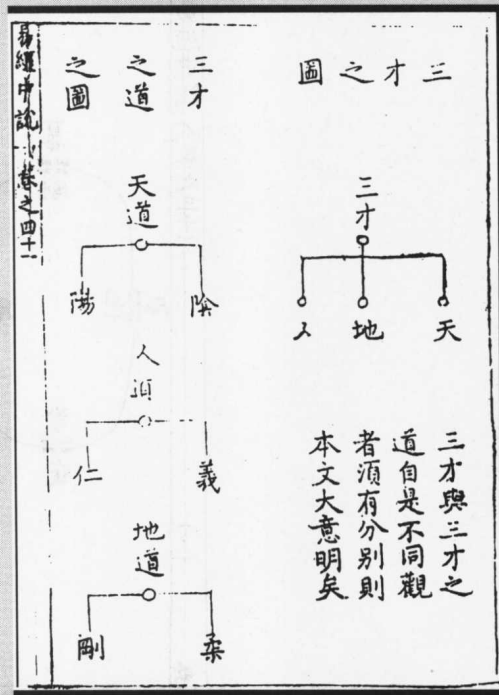 三才之圖
三才
天 地 人
三才與三才之
道自是不同觀
者須有分别則
本文大意明矣
三才
之道
之圖
天道
陰 陽
人道
義 仁
地道
柔 剛
易經中說 卷之四十一